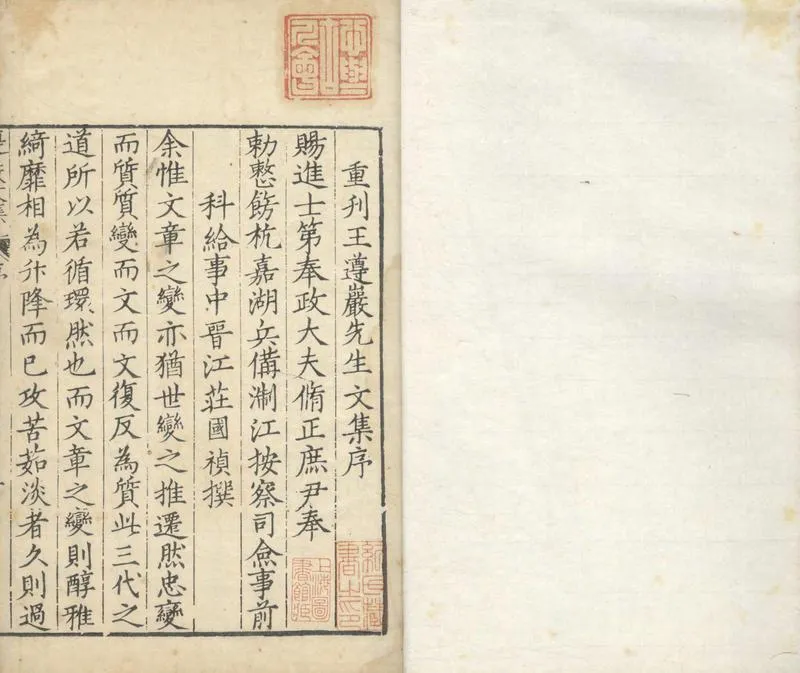 重刋王遵巖先生文集序
賜進士第奉政大夫脩正庶尹奉
勅整飭杭嘉湖兵備淛江按察司僉事前
科給事中晉江莊國禎撰
余惟文章之變亦猶世變之推遷然忠變
而質質變而文而文復反為質此三代之
道所以若循環然也而文章之變則醇雅
綺靡相為升降而已攻苦茹淡者久則過
上海圖
書館藏